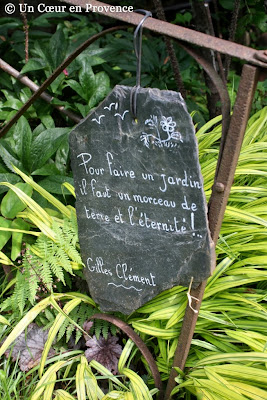 © Un Cœur en Provence
Pour faire un jardin
il faut un morceau de
terre et l'éternité !
Gilles Clément